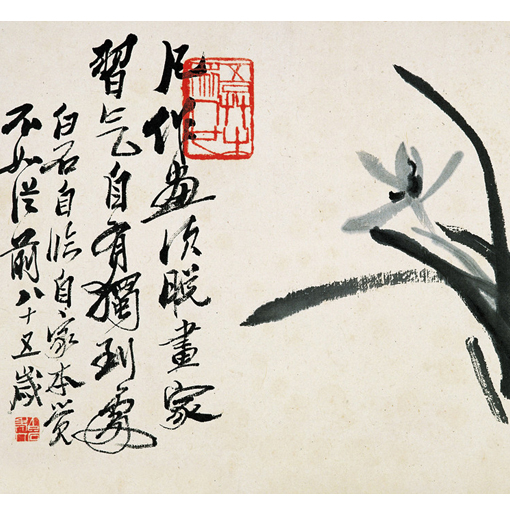 凡作画须脱画家
習气自有獨到處
白石自临自家本觉
不如從前八十五歲